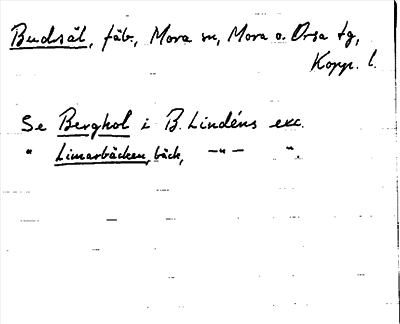 Budsäl, fäb., Mora sn, Mora o. Orsa tg,
Kopp. l.
Se Berghol i B. Lindéns exc.
" Limarbäcken, bäck, —"— ".